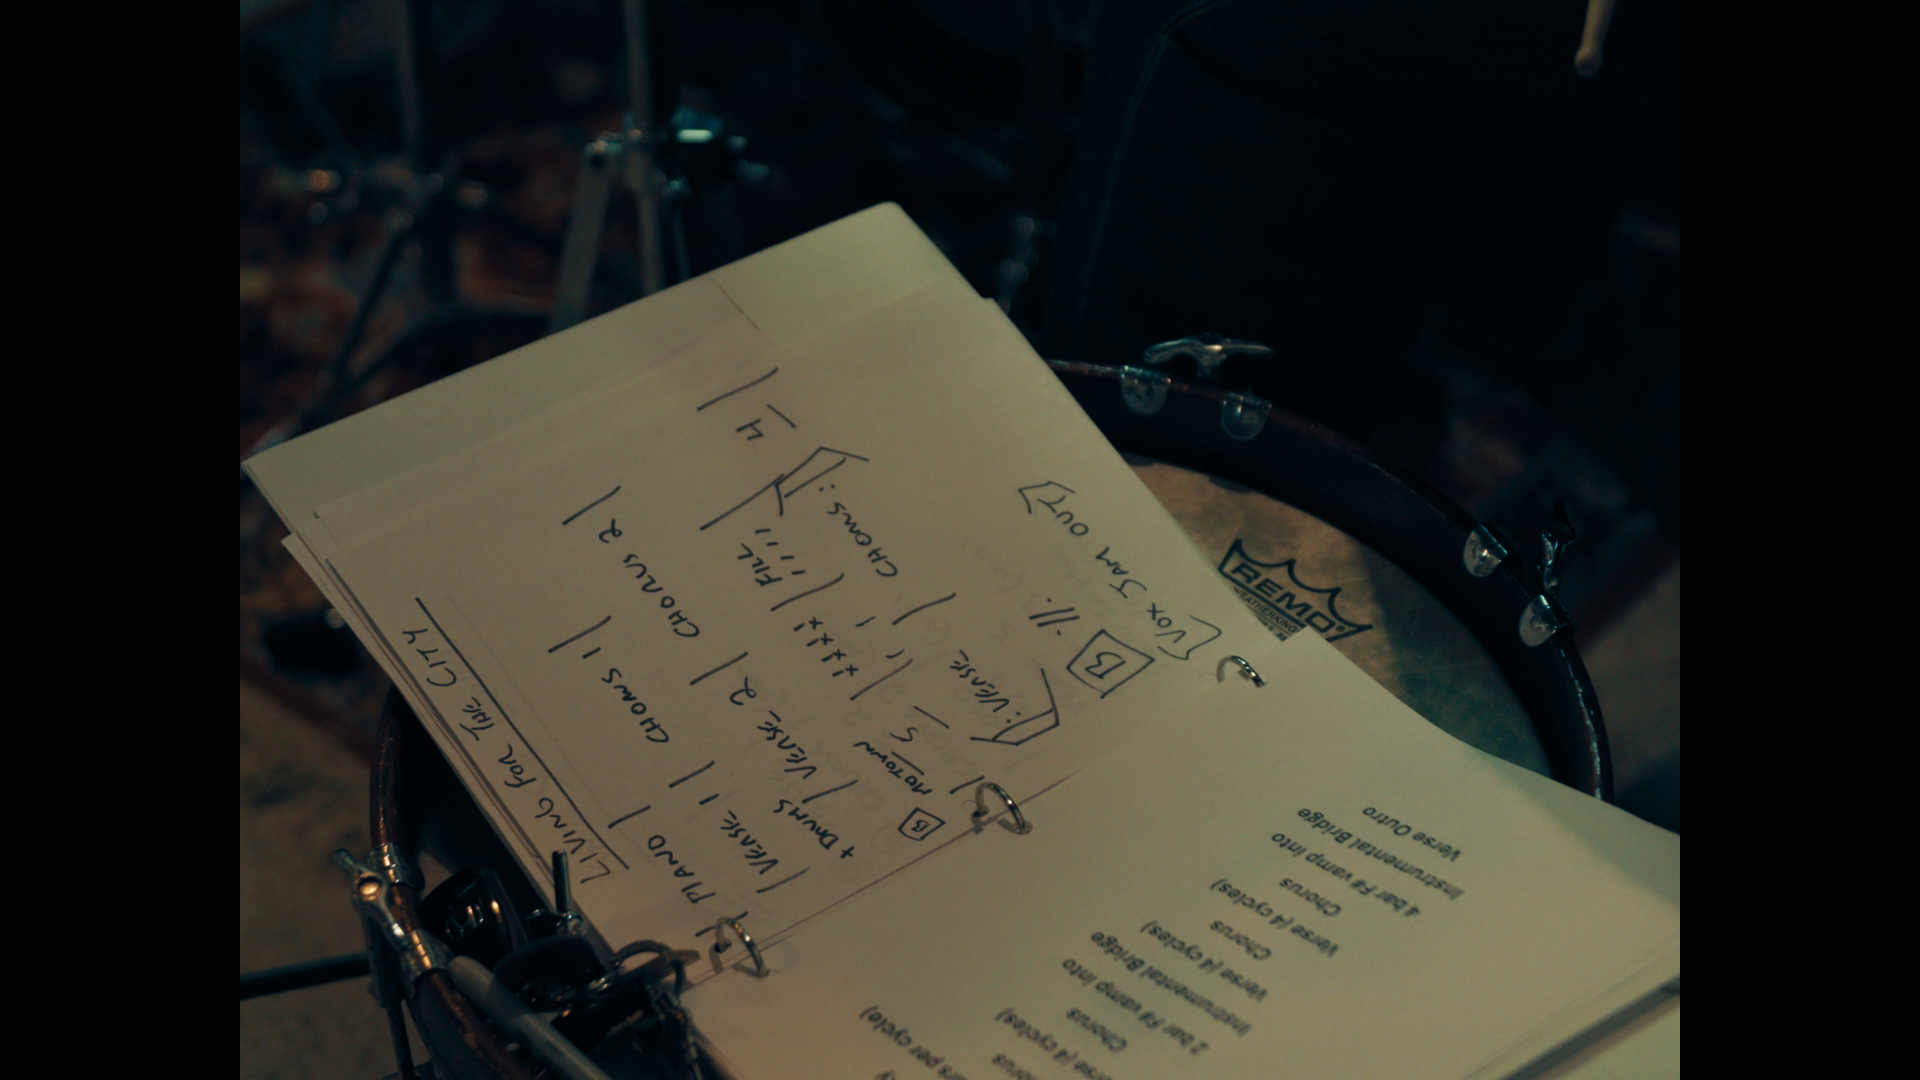 LIVING FOR THE CITY
PIANO
VERSE 1 | CHORUS 1 |
+ DRUMS
| VERSE 2 | CHORUS 2 |
B MOTOWN
5 FILL 4
|: VERSE | CHORUS :|
B
[VOX JAM OUT]
REMO
WEATHERKING
rs per cycle)
horus
erse (4 cycles)
Chorus
2 bar F# vamp into
Instrumental Bridge
Verse (4 cycles)
Chorus
Verse (4 cycles)
Chorus
4 bar F# vamp into
Instrumental Bridge
Verse Outro